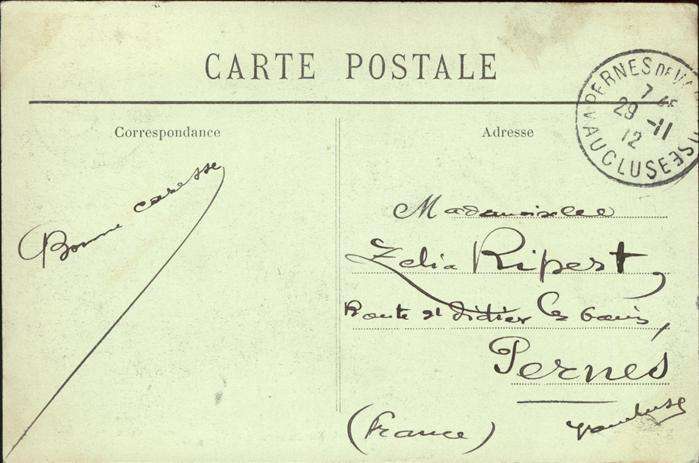 CARTE POSTALE
Correspondance
Adresse
PERNES DE V
VAUCLUSE
7
29 -11
12
Bonne caresse
Mademoiselle
Zelia Ripert,
Route St Didier les bains,
Pernes
(France)
Vaucluse